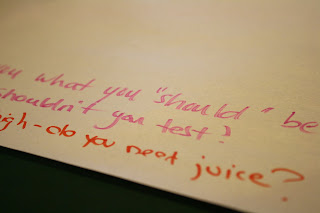 what you "should" be
shouldn't you test?
- do you need juice?